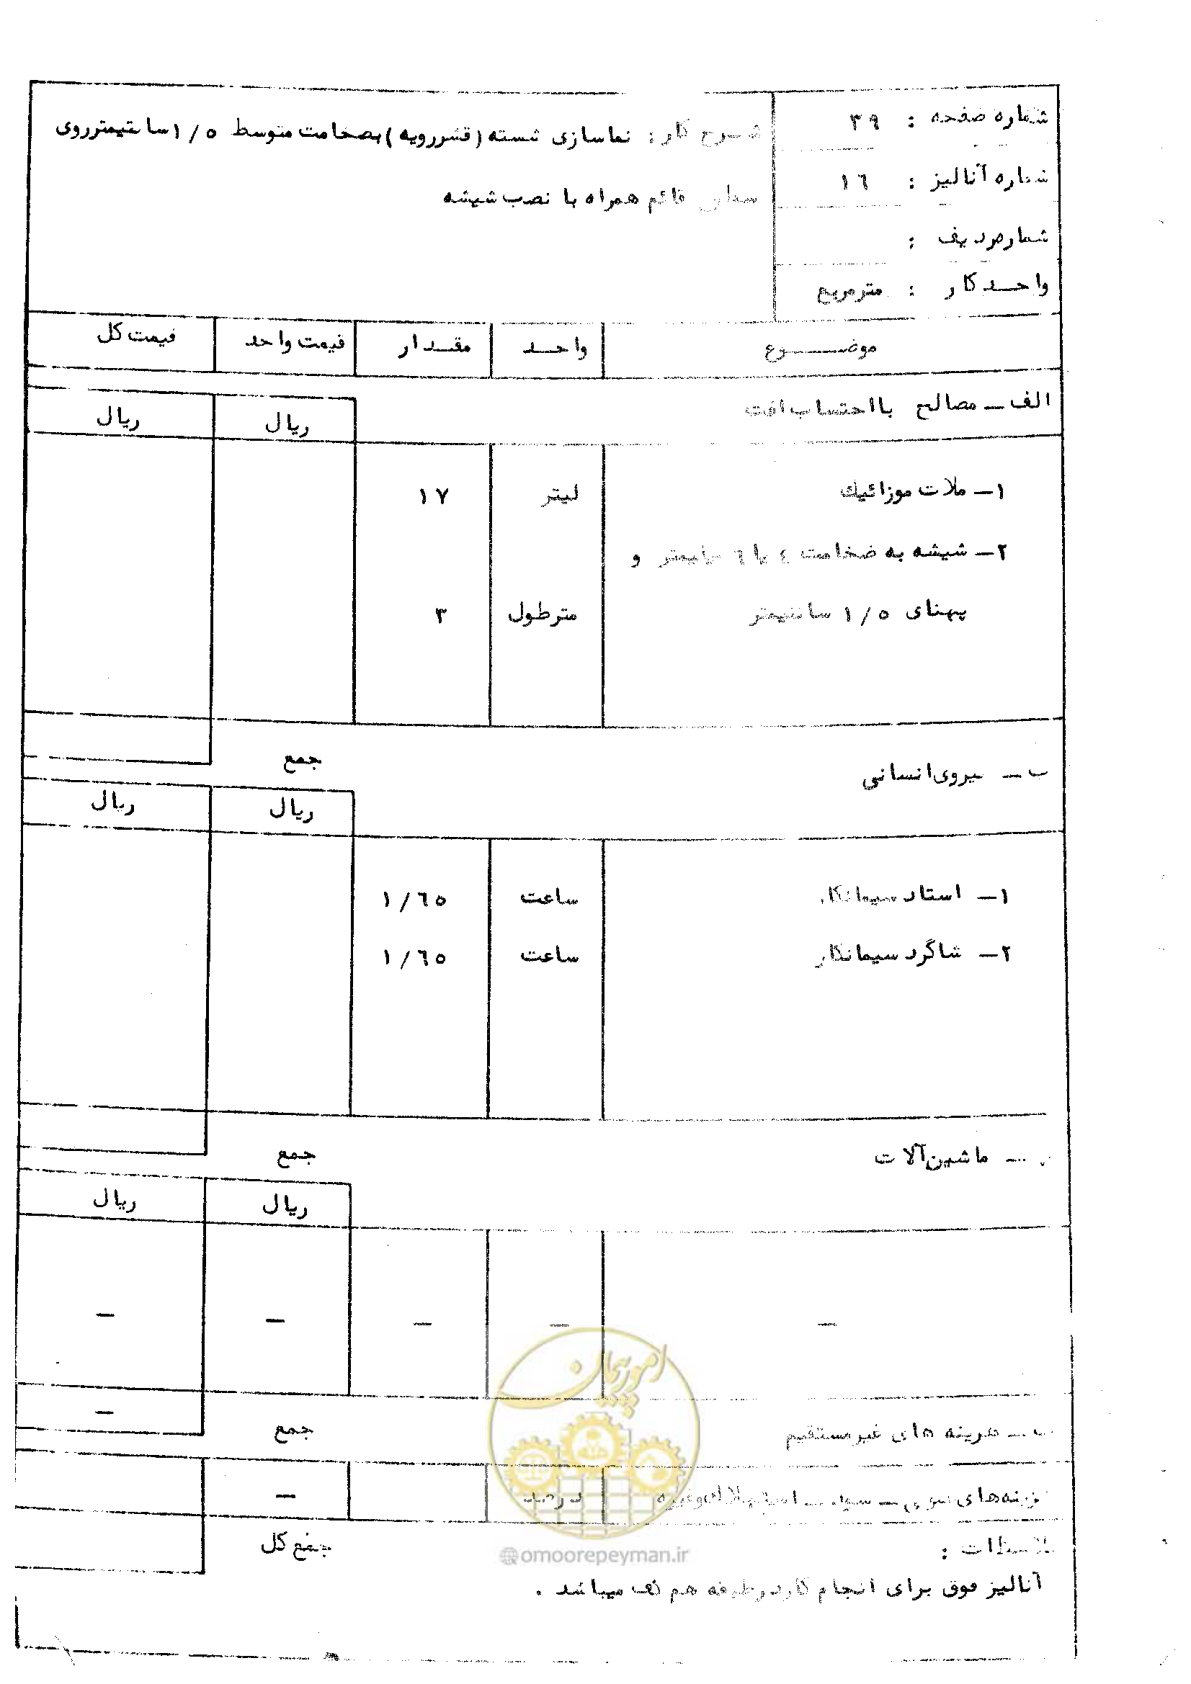 شماره صفحه : ۳۹
شماره آنالیز : ۱٦
شماره ردیف :
واحد کار : مترمربع
شرح کار : نماسازی شسته (قشررویه) بضخامت متوسط ۱/۵ سانتیمترروی
سطوح قائم همراه با نصب شیشه
موضوع واحد مقدار قیمت واحد قیمت کل
الف ــ مصالح بااحتساب افت ریال ریال
۱ــ ملات موزائیك لیتر ۱۷
۲ــ شیشه به ضخامت ٤ یا ٦ میلیمتر و
پهنای ۱/۵ سانتیمتر مترطول ۳
جمع
ب ــ نیروی انسانی
ریال ریال
۱ــ استاد سیمانکار ساعت ۱/٦۵
۲ــ شاگرد سیمانکار ساعت ۱/٦۵
جمع
ــ ماشین آلات
ریال ریال
– – – – –
–
جمع
ــ هزینه های غیرمستقیم
هزینه‌های درصد –
جمع کل
ملاحظات :
آنالیز فوق برای انجام کاردرطبقه هم کف میباشد .
امور پیمان
@omoorepeyman.ir